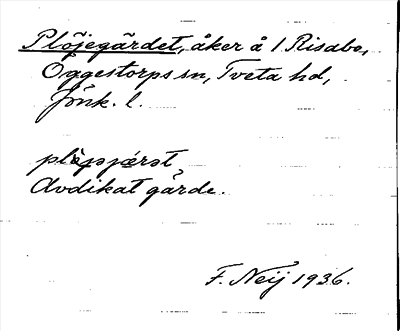 Plöjegärdet, åker å 1 Risabo,
Öggestorps sn, Tveta hd,
Jönk. l.
Avdikat gärde.
F. Neij 1936.